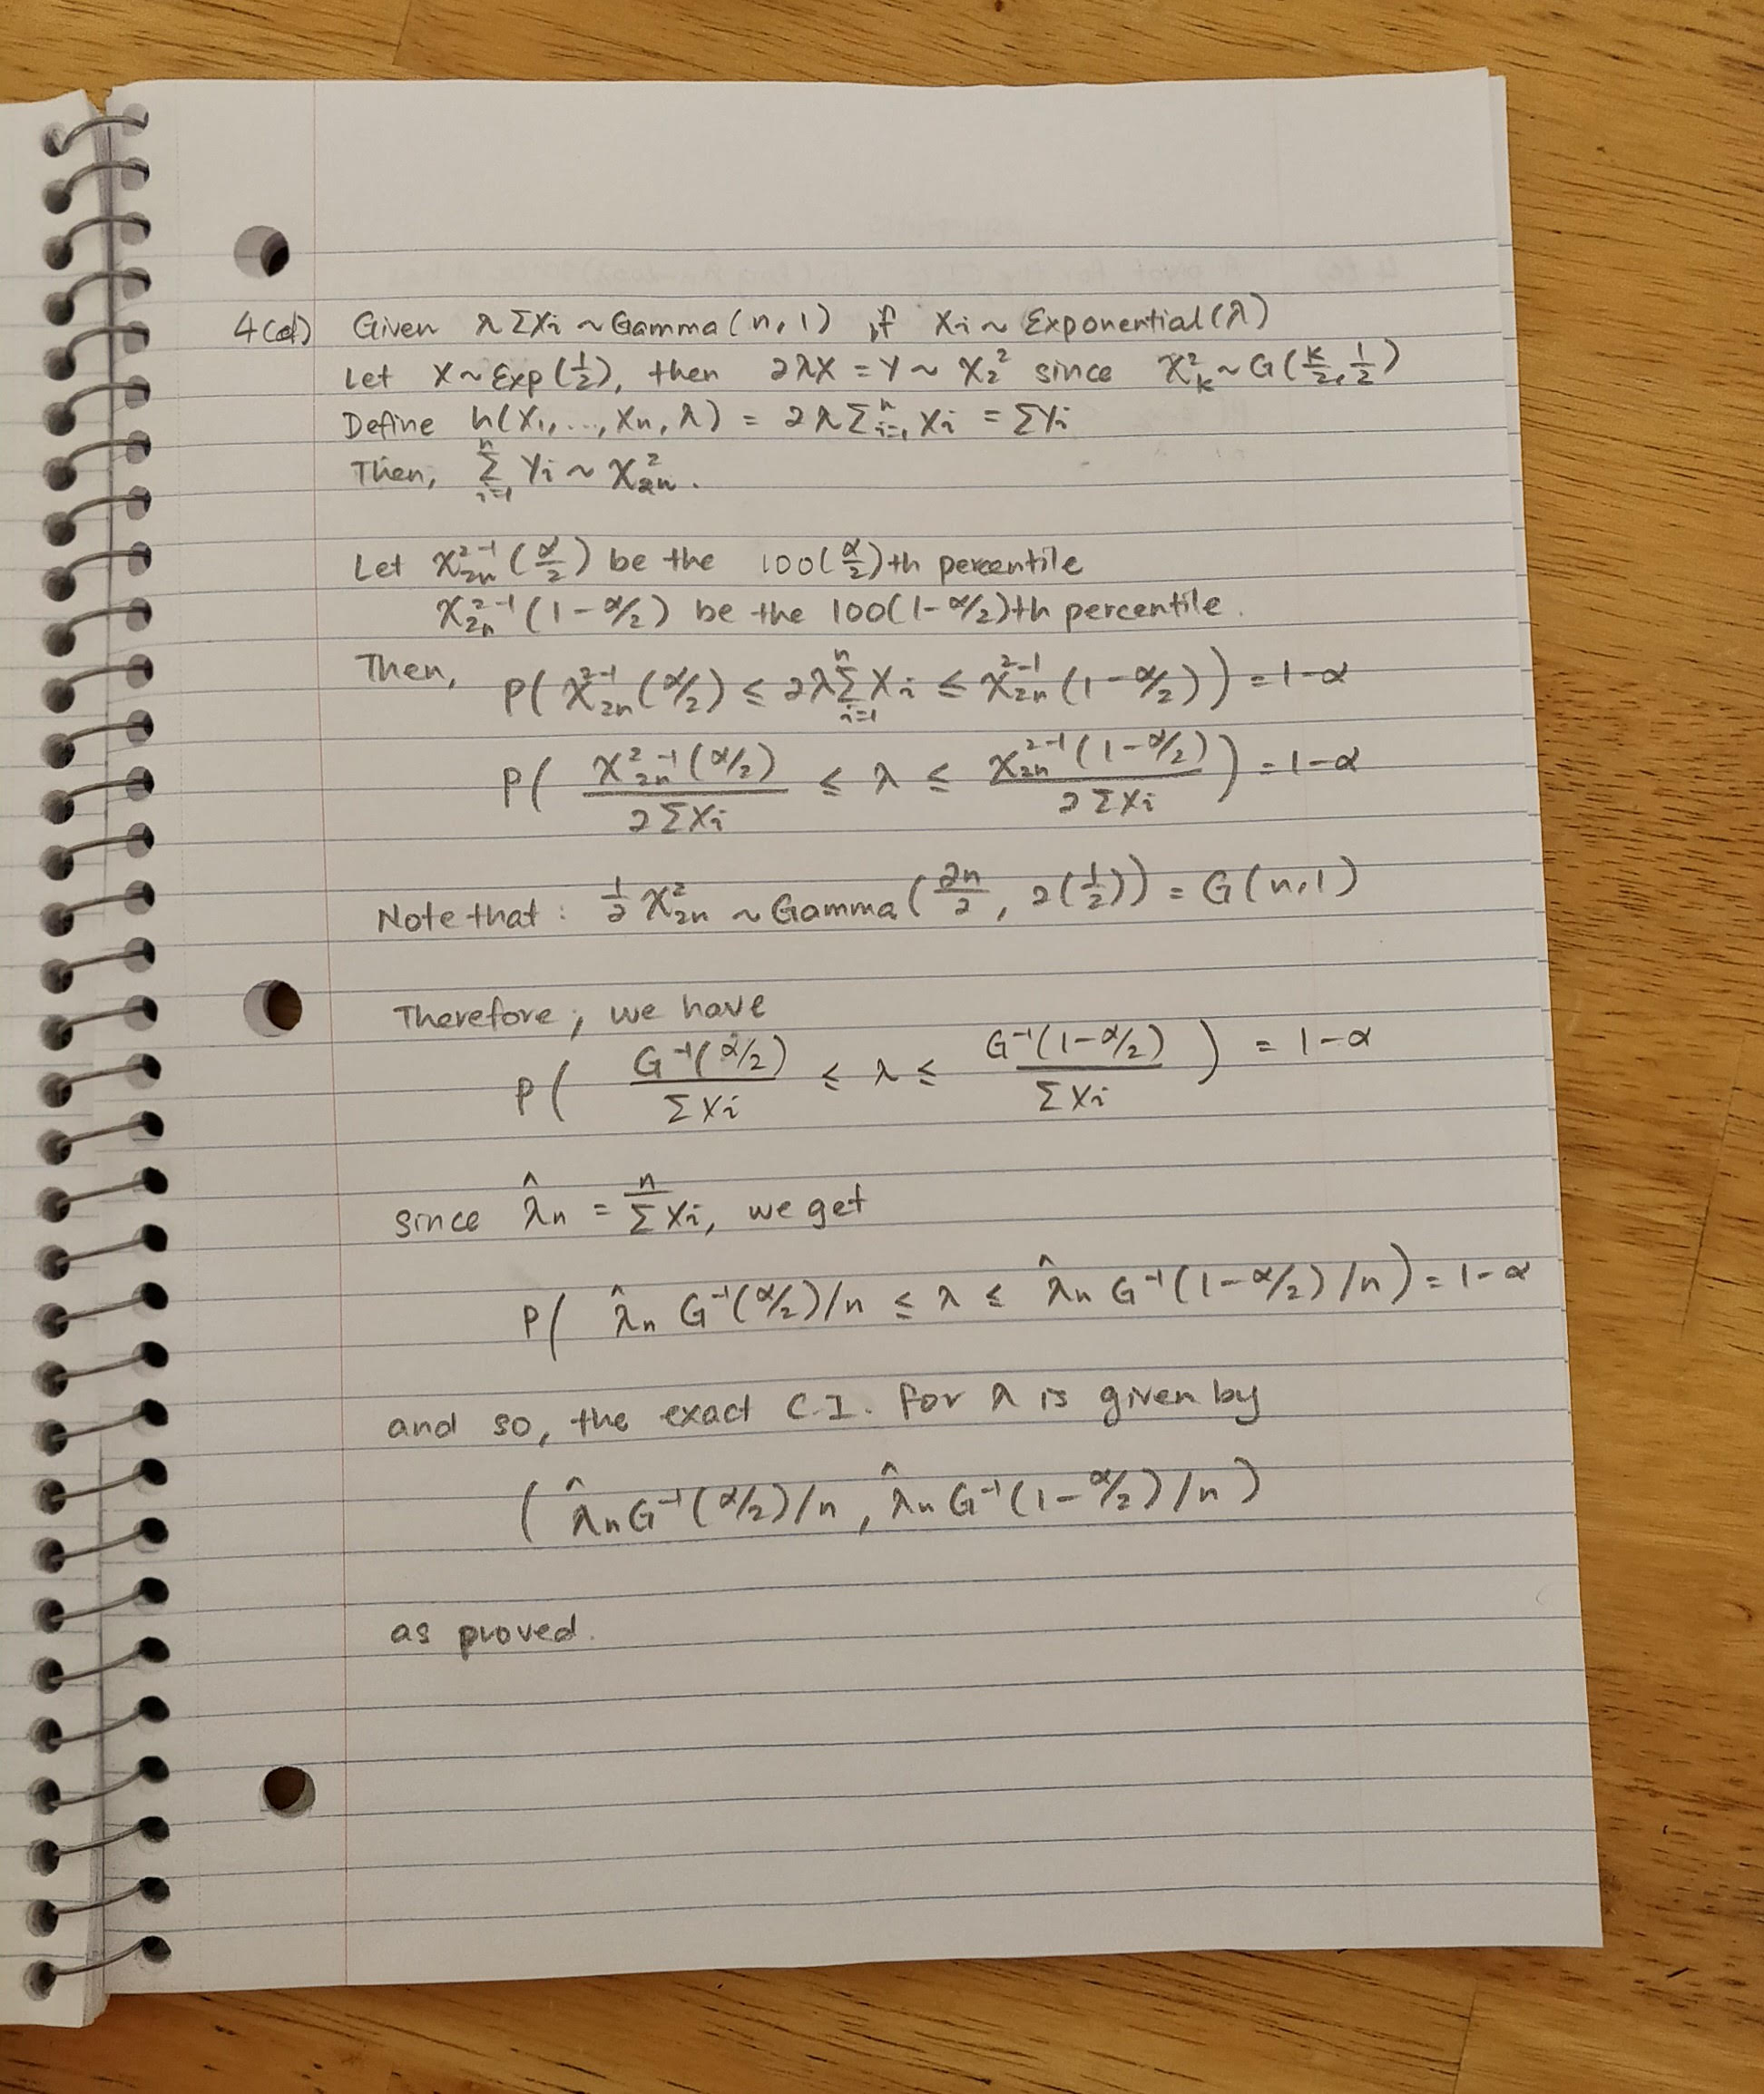 4(d) Given λΣXi ~ Gamma(n, 1) if Xi ~ Exponential(λ)
Let X ~ Exp(1/2), then 2λX = Y ~ χ₂² since χ²ₖ ~ G(k/2, 1/2)
Define h(X₁, ..., Xn, λ) = 2λ Σⁿᵢ₌₁ Xi = ΣYi
Then, Σⁿᵢ₌₁ Yi ~ χ²₂ₙ.
Let χ²⁻¹₂ₙ(α/2) be the 100(α/2)th percentile
χ²⁻¹₂ₙ(1-α/2) be the 100(1-α/2)th percentile.
Then, P( χ²⁻¹₂ₙ(α/2) ≤ 2λ Σⁿᵢ₌₁ Xi ≤ χ²⁻¹₂ₙ(1-α/2) ) = 1-α
P( χ²⁻¹₂ₙ(α/2) / 2ΣXi ≤ λ ≤ χ²⁻¹₂ₙ(1-α/2) / 2ΣXi ) = 1-α
Note that: 1/2 χ²₂ₙ ~ Gamma(2n/2, 2(1/2)) = G(n, 1)
Therefore, we have
P( G⁻¹(α/2) / ΣXi ≤ λ ≤ G⁻¹(1-α/2) / ΣXi ) = 1-α
since λ̂n = n/ΣXi, we get
P( λ̂n G⁻¹(α/2)/n ≤ λ ≤ λ̂n G⁻¹(1-α/2)/n ) = 1-α
and so, the exact C.I. for λ is given by
( λ̂n G⁻¹(α/2)/n , λ̂n G⁻¹(1-α/2)/n )
as proved.